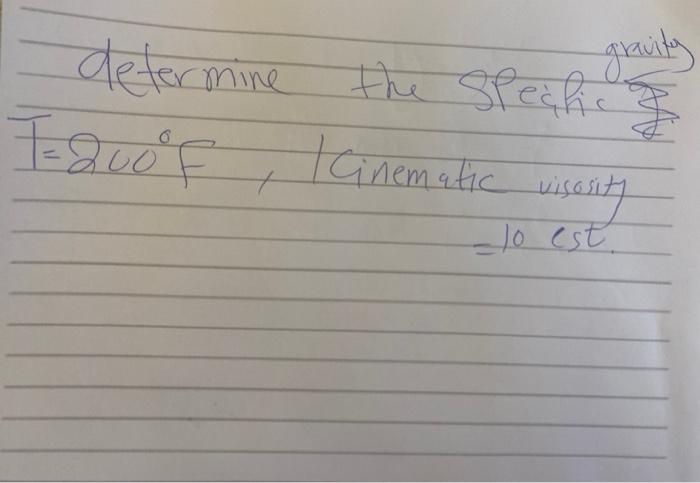 gravity
determine the Specific
T=200°F, Kinematic viscosity
=10 cst.